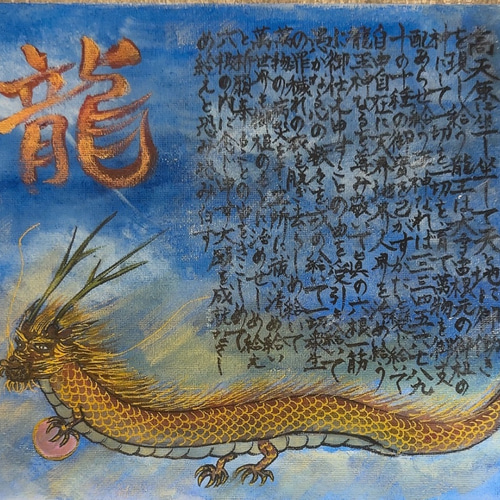 高天原に坐し坐して天と地に御働き
を現し給う龍王は大宇宙根元の御祖の
御使いにして一切を産み一切を育て萬物を御支
配あらせ給う王神なれば一二三四五六七八九
十の十種の御寶を己がすがたと変じ給いて
自由自在に天界地界人界を治め給う
龍王神なるを尊み敬いて眞の六根一筋
に御仕え申すことの由を受引き給いて
愚かなる心の数々を戒め給いて一切衆生
の罪穢れの衣を脱ぎ去らしめ給いて
萬物の病災をも立所に祓い清め給い
萬世界も御祖のもとに治めせしめ給え
と祈願奉ることの由をきこしめして
六根の内に念じ申す大願を成就なさし
め給えと恐み恐み白す
龍